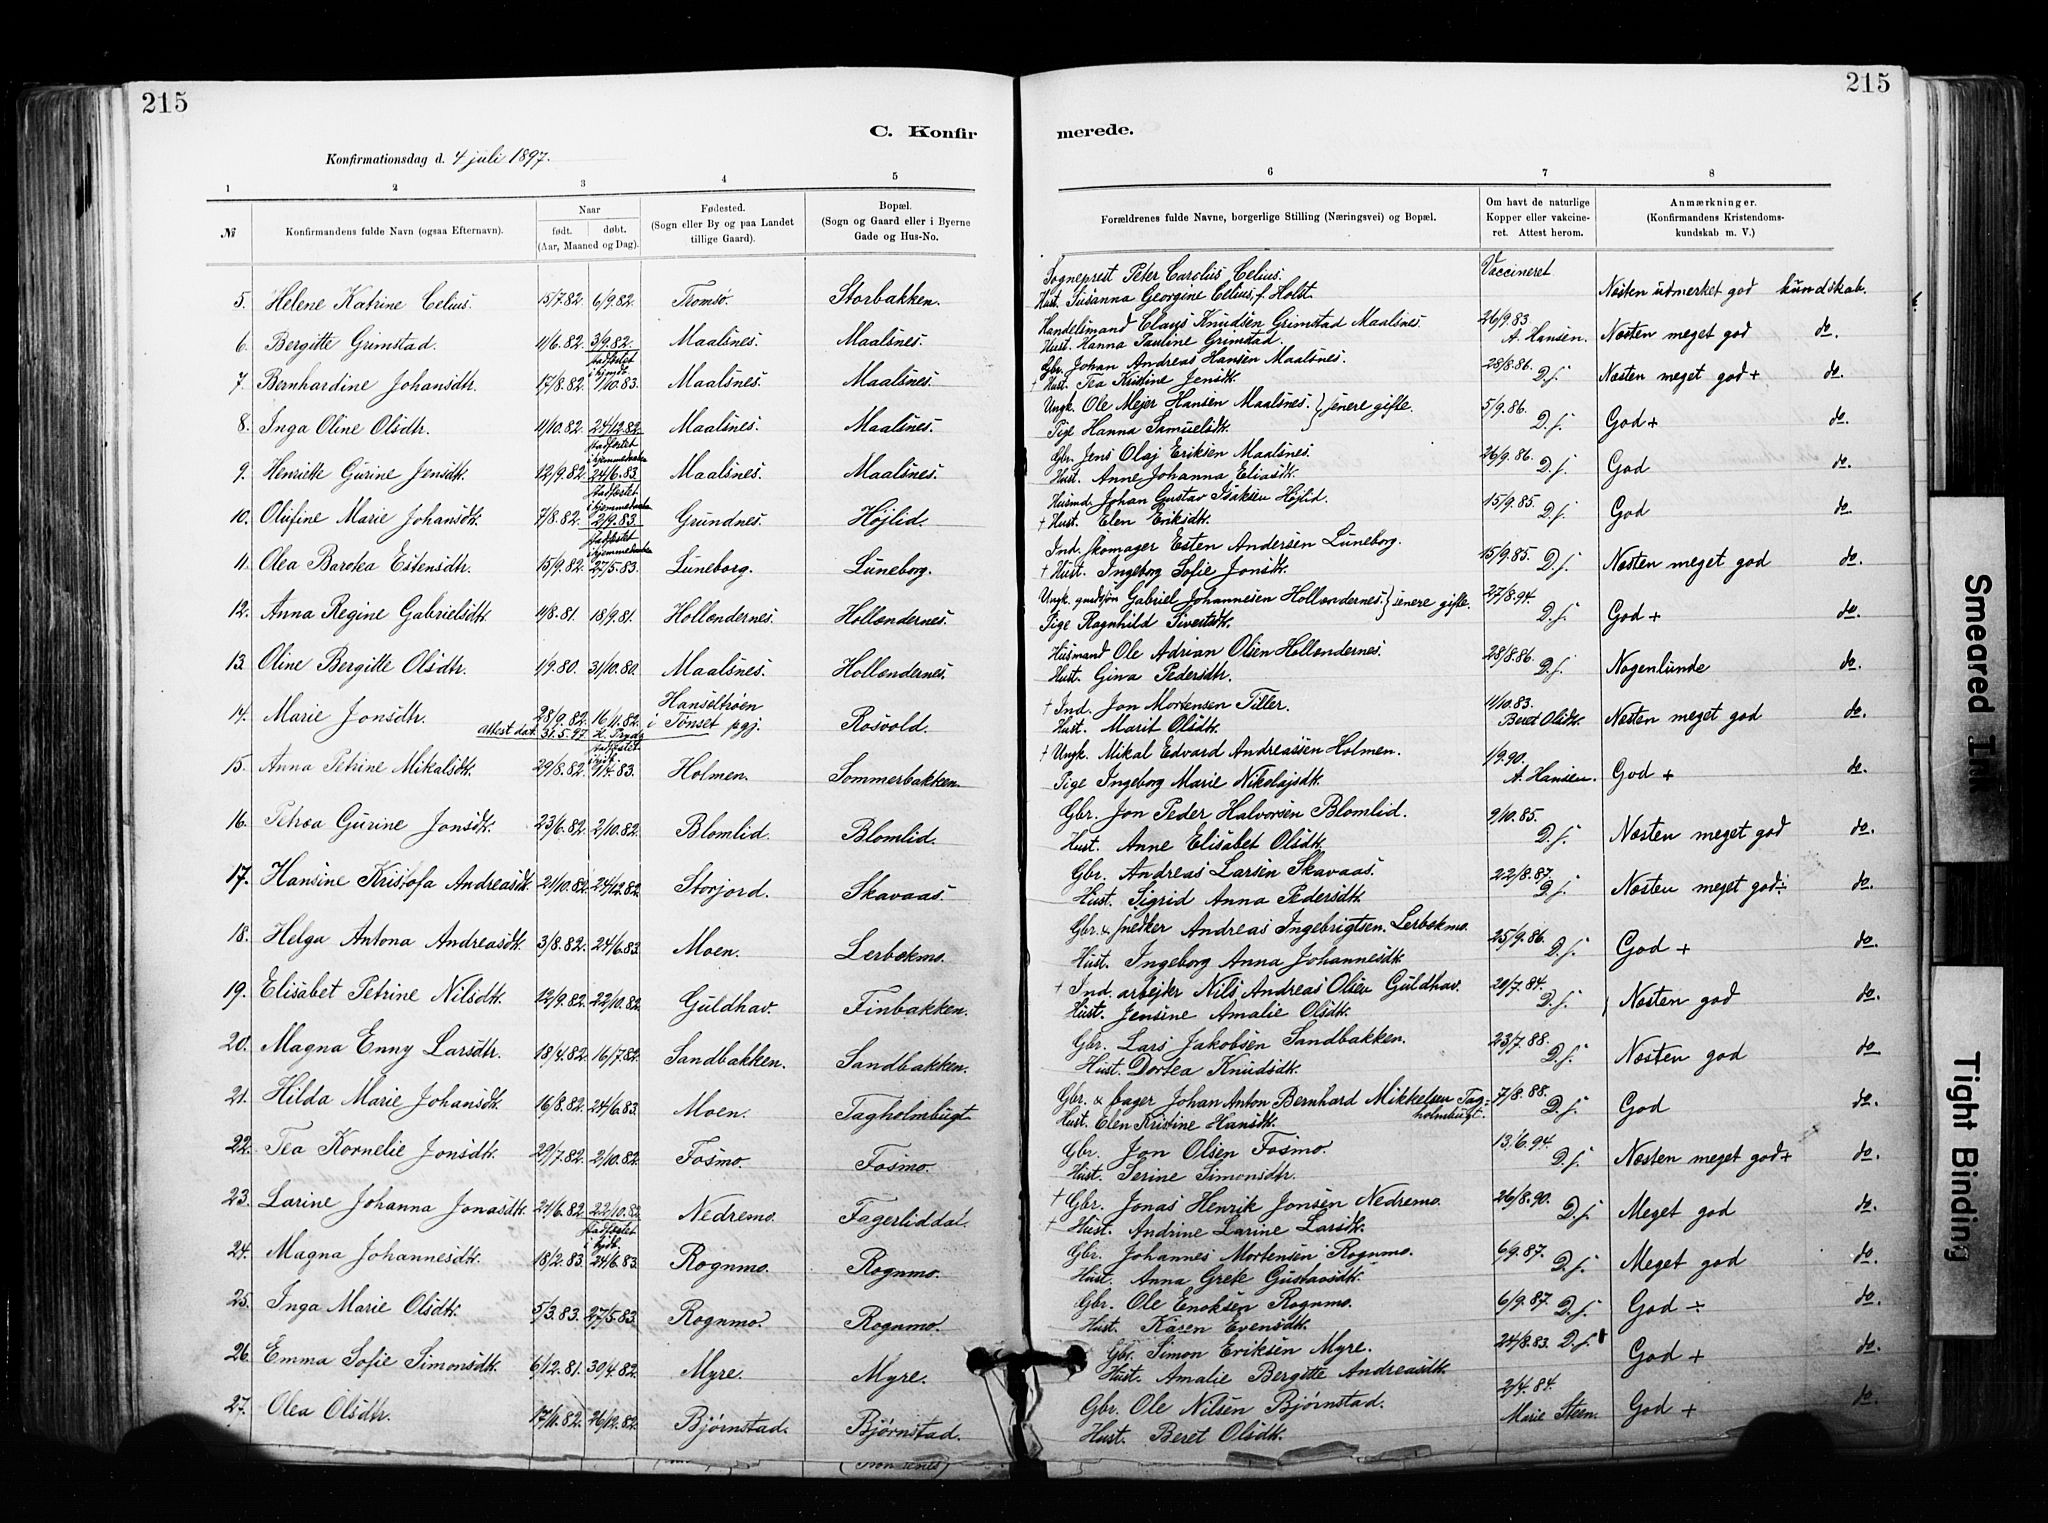 215
215
C. Konfir
merede.
Konfirmationsdag d. 4 juli 1897.
1 2 3 4 5 6 7 8
№
Konfirmandens fulde Navn (ogsaa Efternavn).
Naar
født. døbt.
(Aar, Maaned og Dag).
Fødested.
(Sogn eller By og paa Landet
tillige Gaard).
Bopæl.
(Sogn og Gaard eller i Byerne
Gade og Hus-No.
Forældrenes fulde Navne, borgerlige Stilling (Næringsvei) og Bopæl.
Om havt de naturlige
Kopper eller vakcine-
ret. Attest herom.
Anmærkninger.
(Konfirmandens Kristendoms-
kundskab m. V.)
5. Helene Katrine Celius. 15/7.82. 6/9.82. Tromsø. Storbakken. Sogneprest Peter Carolus Celius. Vaccineret
Hust. Susanna Georgine Celius, f. Holst. Næsten udmerket god kundskab.
6. Bergitte Grimstad. 11/6.82. 3/9.82. Maalsnes. Maalsnes. Handelsmand Claus Knudsen Grimstad Maalsnes. 26/9.83
Hust. Hanna Pauline Grimstad. A. Hansen. Næsten meget god do.
stadfestet
i hjmdb.
7. Bernhardine Johansdtr. 17/8.82. 1/10.83. Maalsnes. Maalsnes. Gbr. Johan Andreas Hansen Maalsnes. 28/8.86.
† Hust. Tea Kristine Jensdt. D.s. Næsten meget god + do.
8. Inga Oline Olsdtr. 11/10.82. 24/12.82 Maalsnes. Maalsnes. Ungk. Ole Mejer Hansen Maalsnes. } senere gifte. 5/9.86.
Pige Hanna Samuelsdt. D.s. God + do.
stadfestet
i hjemmedaaben
9. Henriette Gurine Jensdt. 12/9.82. 24/6.83 Maalsnes. Maalsnes. Gbr. Jens Olaj Eriksen Maalsnes. 26/9.86.
Hust. Anne Johanna Eliasdt. D.s. God do.
stadfestet
i hjemmedaaben
10. Olufine Marie Johansdt. 7/8.82. 2/9.83 Grundnes. Højlid. Husmd. Johan Gustav Isaksen Højlid. 15/9.85.
† Hust. Elen Eriksdt. D.s. God do.
stadfestet
i hjemmedaaben
11. Olea Barotea Estensdtr. 15/9.82. 27/5.83. Luneborg. Luneborg. Ind. skomager Esten Andersen Luneborg.
† Hust. Ingeborg Sofie Jonsdt. 15/9.85. D.s. Næsten meget god do.
12. Anna Regine Gabrielsdt. 11/8.81. 18/9.81. Hollendernes. Hollendernes. Ungk. Gabriel Johannesen Hollendernes. } senere gifte. 27/8.94.
Pige Ragnhild Sivertsdt. D.s. God + do.
13. Oline Bergitte Olsdtr. 1/9.80. 31/10.80. Maalsnes. Hollendernes. Husmand Ole Adrian Olsen Hollendernes. 28/8.86.
Hust. Gina Pedersdtr. D.s. Nogenlunde do.
14. Marie Jonsdtr. 28/9.82. 16/11.82. Hanseltrøen
attest dat. 31.5.97. i Tønset pgj. Rosvold. † Ind. Jon Mortensen Tiller. 11/10.83.
Hust. Marit Olsdt. Beret Olsdt. Næsten meget god do.
15. Anna Petrine Mikalsdt. 29/8.82. 1/4.83. Holmen. Sommerbakken. † Ungk. Mikal Edvard Andreassen Holmen. 1/9.90.
Pige Ingeborg Marie Nikolajsdt. A. Hansen. God + do.
16. Petrea Gurine Jonsdt. 23/6.82. 2/10.82. Blomlid. Blomlid. Gbr. Jon Peder Halvorsen Blomlid. 9/10.85.
Hust. Anne Elisabet Olsdt. D.s. Næsten meget god do.
17. Hansine Kristofa Andreasdt. 21/10.82. 24/12.82 Storjord. Skavaas. Gbr. Andreas Larsen Skavaas. 22/8.87.
Hust. Sigrid Anna Pedersdt. D.s. Næsten meget god ÷ do.
18. Helga Antona Andreasdt. 3/8.82. 24/6.83. Moen. Lerbekmo. Gbr. & snedker Andreas Ingebrigtsen Lerbekmo. 25/9.86.
Hust. Ingeborg Anna Johannesdt. D.s. God + do.
19. Elisabet Petrine Nilsdt. 12/9.82. 22/10.82. Guldhav. Finbakken. † Ind. arbejder Nils Andreas Olsen Guldhav. 29/7.84.
Hust. Jensine Amalie Olsdt. D.s. Næsten god do.
20. Magna Enny Larsdtr. 18/4.82. 16/7.82. Sandbakken. Sandbakken. Gbr. Lars Jakobsen Sandbakken. 23/7.88.
Hust. Dortea Knudsdt. D.s. Næsten god do
21. Hilda Marie Johansdt. 16/8.82. 24/6.83. Moen. Tagholmbugt. Gbr. & bager Johan Anton Bernhard Mikkelsen Tag- 7/8.88.
holmbugt.
Hust. Elen Kristine Hansdt. D.s. God do.
22. Tea Kornelie Jonsdt. 29/7.82. 2/10.82. Fosmo. Fosmo. Gbr. Jon Olsen Fosmo. 13/6.94.
Hust. Serine Simonsdtr. D.s. Næsten meget god + do.
23. Larine Johanna Jonasdt. 21/6.82. 22/10.82. Nedremo. Fagerliddal. † Gbr. Jonas Henrik Jonsen Nedremo. 26/8.90.
† Hust. Andrine Larine Larsdt. D.s. Meget god do.
stadfestet
i hjdb.
24. Magna Johannesdt. 18/2.83. 24/6.83. Rognmo. Rognmo. Gbr. Johannes Mortensen Rognmo. 6/9.87.
Hust. Anna Grete Gustavsdt. D.s. Meget god do.
25. Inga Marie Olsdt. 5/3.83. 27/5.83. Rognmo. Rognmo. Gbr. Ole Enoksen Rognmo. 6/9.87. D.s. God ÷ do.
Hust. Karen Evensdt.
26. Emma Sofie Simonsdt. 6/12.81. 30/4.82. Myre. Myre. Gbr. Simon Eriksen Myre. 24/8.83. D.s.
Hust. Amalie Bergitte Andreasdt. God + do.
27. Olea Olsdtr. 17/11.82. 26/12.82. Bjørnstad. Bjørnstad. Gbr. Ole Nilsen Bjørnstad. 2/4.84.
Hust. Beret Olsdt. Marie Steen. God + do.
Smeared Ink
Tight Binding